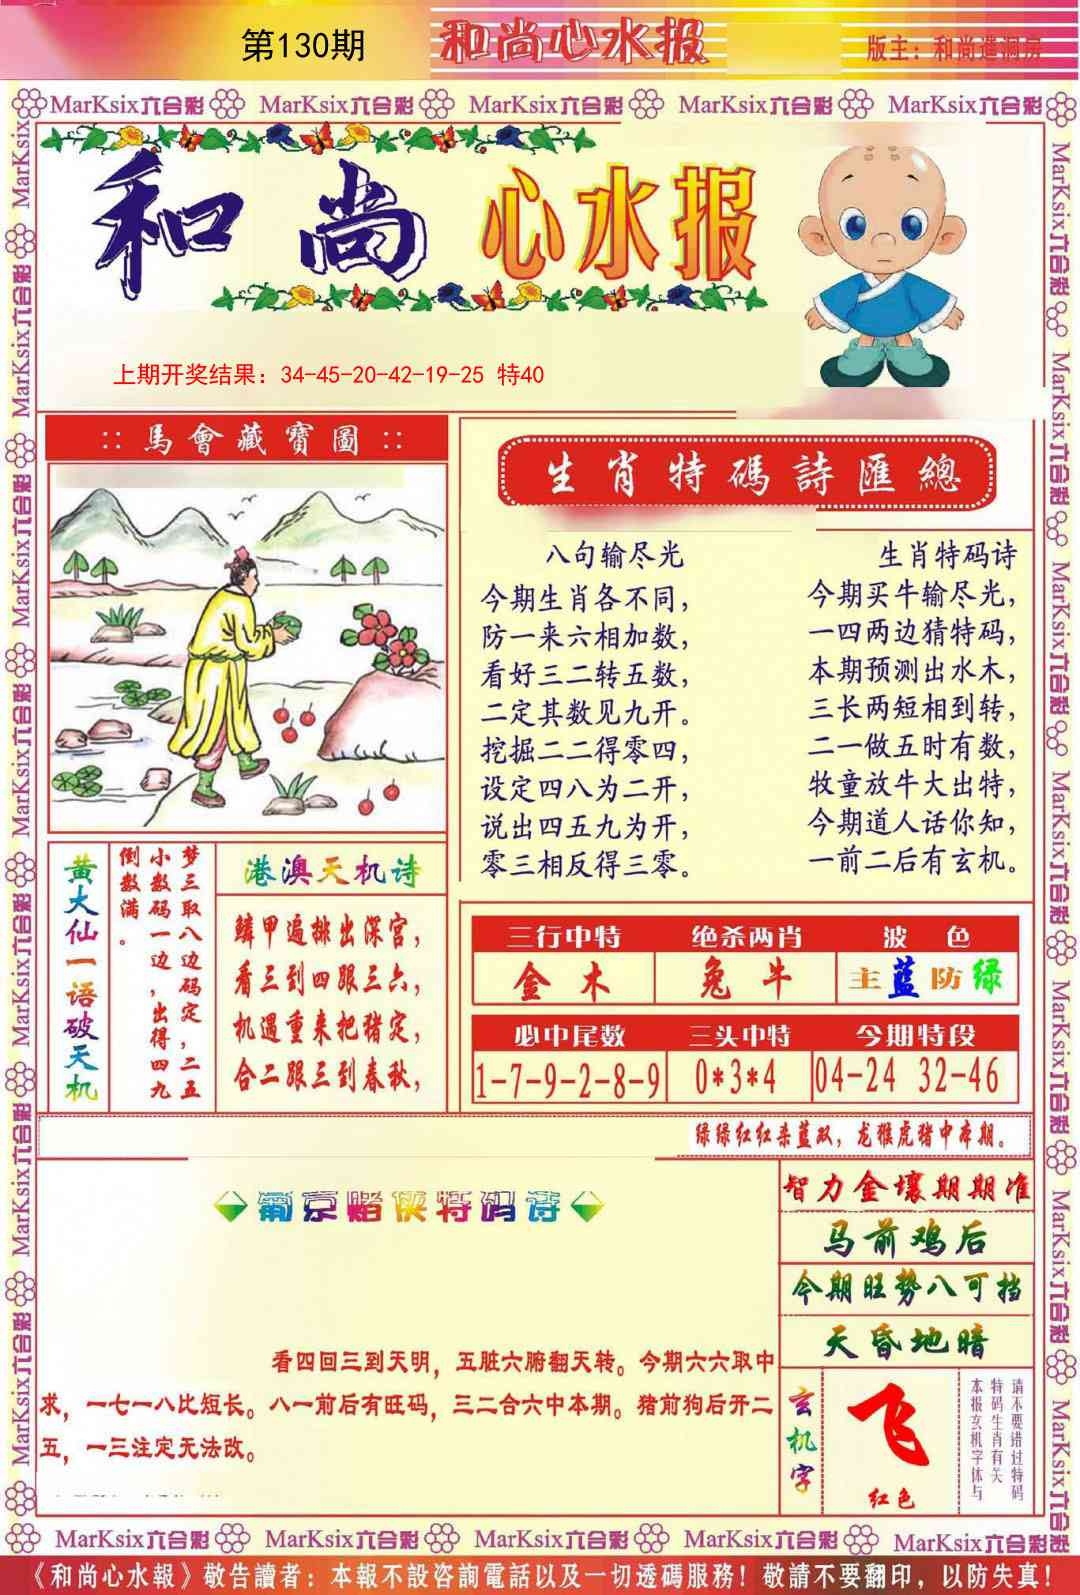 第130期
和尚心水报
版主：和尚造洞房
MarKsix六合彩 MarKsix六合彩 MarKsix六合彩 MarKsix六合彩 MarKsix六合彩
和尚心水报
上期开奖结果：34-45-20-42-19-25 特40
::馬會藏寶圖::
生肖特碼詩匯總
八句输尽光
今期生肖各不同，
防一来六相加数，
看好三二转五数，
二定其数见九开。
挖掘二二得零四，
设定四八为二开，
说出四五九为开，
零三相反得三零。
生肖特码诗
今期买牛输尽光，
一四两边猜特码，
本期预测出水木，
三长两短相到转，
二一做五时有数，
牧童放牛大出特，
今期道人话你知，
一前二后有玄机。
黄大仙一语破天机
梦三取八边码定，二五
小数码一边，出得四九
倒数满。
港澳天机诗
鳞甲遍排出深宫，
看三到四跟三六，
机遇重来把猪定，
合二跟三到春秋，
三行中特 绝杀两肖 波色
金木 兔牛 主蓝防绿
必中尾数 三头中特 今期特段
1-7-9-2-8-9 0*3*4 04-24 32-46
绿绿红红杀蓝双，龙猴虎猪中本期。
葡京赌侠特码诗
看四回三到天明，五脏六腑翻天转。今期六六取中
求，一七一八比短长。八一前后有旺码，三二合六中本期。猪前狗后开二
五，一三注定无法改。
智力金壤期期准
马前鸡后
今期旺势八可挡
天昏地暗
玄机字
飞
红色
请不要错过特码
特码生肖有关
本报玄机字体与
MarKsix六合彩 MarKsix六合彩 MarKsix六合彩 MarKsix六合彩 MarKsix六合彩
《和尚心水報》敬告讀者：本報不設咨詢電話以及一切透碼服務！敬請不要翻印，以防失真！